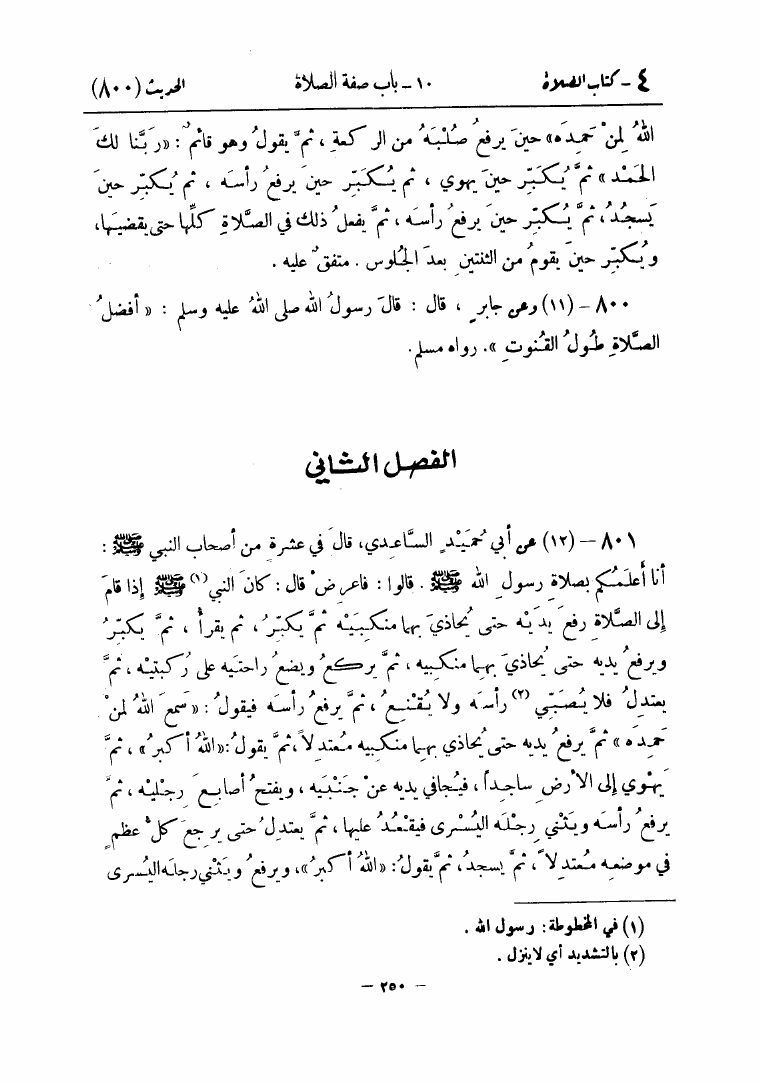 ٤ - كتاب الصلاة ١٠ - باب صفة الصلاة الحديث (٨٠٠)
اللهُ لِمنْ حَمِدَه» حينَ يرفعُ صُلْبَهُ من الركعةِ، ثمَّ يقولُ وهو قائمٌ: «رَبَّنا لكَ
الحَمْد» ثمَّ يُكَبِّر حينَ يهوي، ثم يُكبِّر حينَ يرفعُ رأسَه، ثم يُكبِّر حينَ
يَسجُدُ، ثمَّ يُكبِّر حينَ يرفعُ رأسَه، ثمَّ يفعلُ ذلك في الصَّلاةِ كلِّها حتى يقضيَها،
ويُكبِّر حينَ يقومُ من الثنتينِ بعدَ الجُلوس. متفقٌ عليه.
٨٠٠ - (١١) وعن جابرٍ، قال: قالَ رسولُ الله صلى اللهُ عليه وسلم: «أفضلُ
الصَّلاةِ طُولُ القُنوتِ». رواه مسلم.
الفصل الثاني
٨٠١ - (١٢) عن أبي حُمَيْدٍ السَّاعِدي، قالَ في عشرةٍ من أصحابِ النبي ﷺ:
أنا أعلَمُكم بصلاةِ رسولِ الله ﷺ. قالوا: فاعرِضْ قال: كانَ النبي(١) ﷺ إذا قامَ
إلى الصَّلاةِ رفعَ يدَيْه حتى يُحاذيَ بهما منكبَيْه ثمَّ يكبِّرُ، ثم يقرأُ، ثمَّ يكبِّرُ
ويرفعُ يديه حتى يُحاذيَ بهما منكبيه، ثمَّ يركعُ ويضعُ راحتَيه على رُكبتيْه، ثمَّ
يعتدلُ فلا يُصَبِّي(٢) رأسَه ولا يُقْنِعُ، ثمَّ يرفعُ رأسَه فيقولُ: «سَمعَ اللهُ لمنْ
حَمِدَه» ثمَّ يرفعُ يديه حتى يُحاذي بهما منكبيه مُعتدِلاً، ثمَّ يقولُ: «اللهُ أكبرُ»، ثمَّ
يَهْوي إلى الأرضِ ساجِداً، فيُجافي يديه عنْ جَنْبَيه، ويفتحُ أصابعَ رِجْليْه، ثمَّ
يرفعُ رأسَه ويَثْني رِجْلَه اليُسْرى فيقْعُدُ عليها، ثمَّ يعتدِلُ حتى يرجعَ كلُّ عظمٍ
في موضعِه مُعتدِلاً، ثمَّ يسجدُ، ثمَّ يقولُ: «اللهُ أكبرُ»، ويرفعُ ويَثْني رجلَه اليُسرى
(١) في المخطوطة: رسول الله.
(٢) بالتشديد أي لاينزل.
- ٢٥٠ -